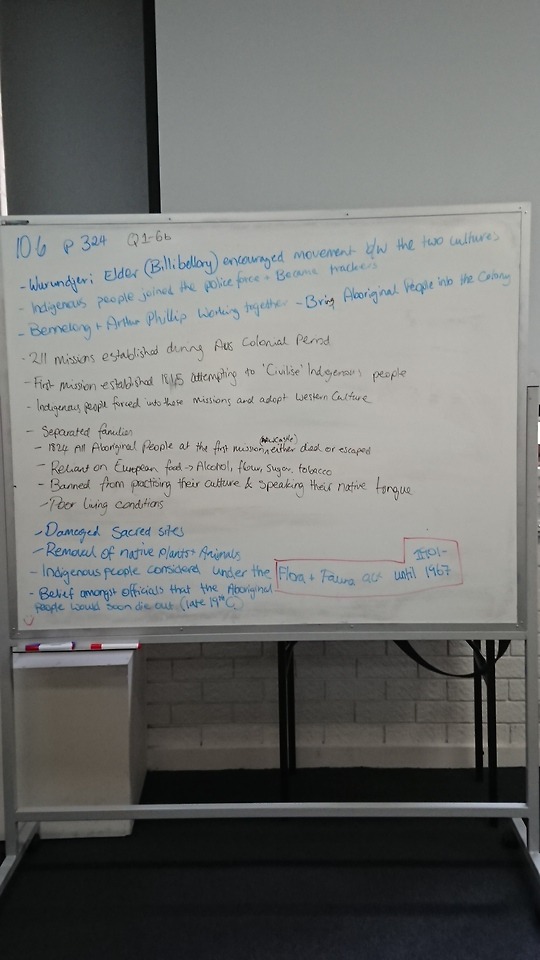 10.6 p 324 Q1-6b
- Wurundjeri Elder (Billibellary) encouraged movement b/w the two cultures
- Indigenous people joined the police force + Became trackers
- Bennelong + Arthur Phillip Working together - Bring Aboriginal People into the Colony
- 211 missions established during Aus Colonial Period
- First mission established 1815 attempting to 'Civilise' Indigenous people
- Indigenous People forced into these missions and adopt Western Culture
- Separated families
- 1824 All Aboriginal People at the first mission (Newcastle) either died or escaped
- Reliant on European food → Alcohol, flour, sugar, tobacco
- Banned from practising their culture & speaking their native tongue
- Poor living conditions
- Damaged Sacred sites
- Removal of native plants + Animals
- Indigenous people considered under the Flora + Fauna act until 1901-1967
- Belief amongst officials that the Aboriginal
People would soon die out (late 19th C)